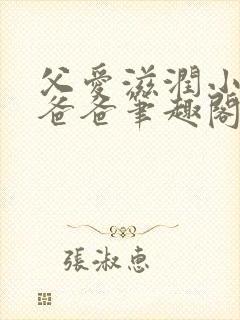 父愛滋潤小
爸爸筆趣閣
張淑惠